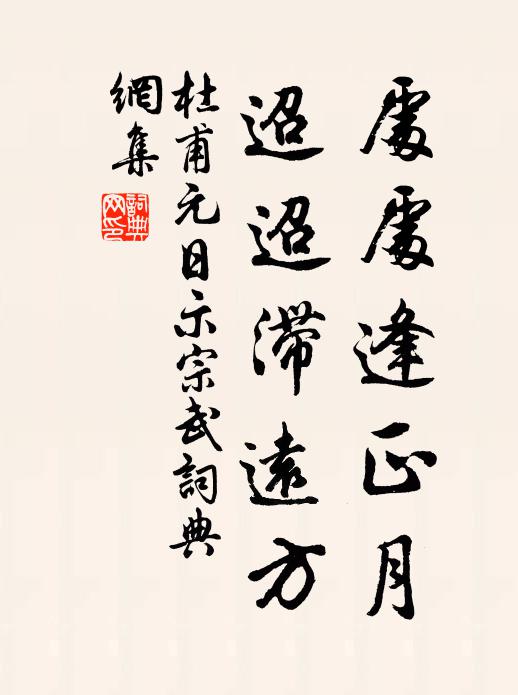 處處逢正月
迢迢滯遠方
杜甫元日示宗武詞典
網集
詞典網印